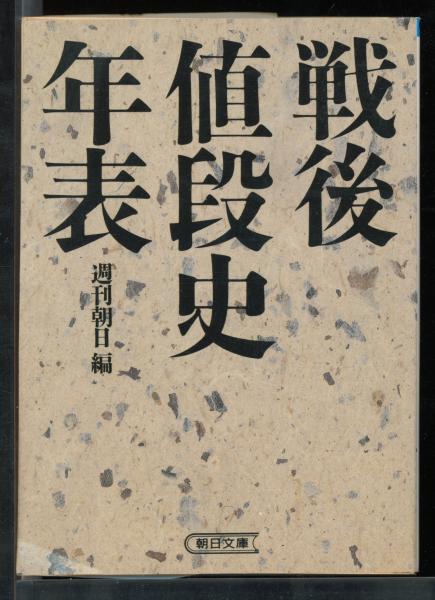 戦後
値段史
年表
週刊朝日編
朝日文庫